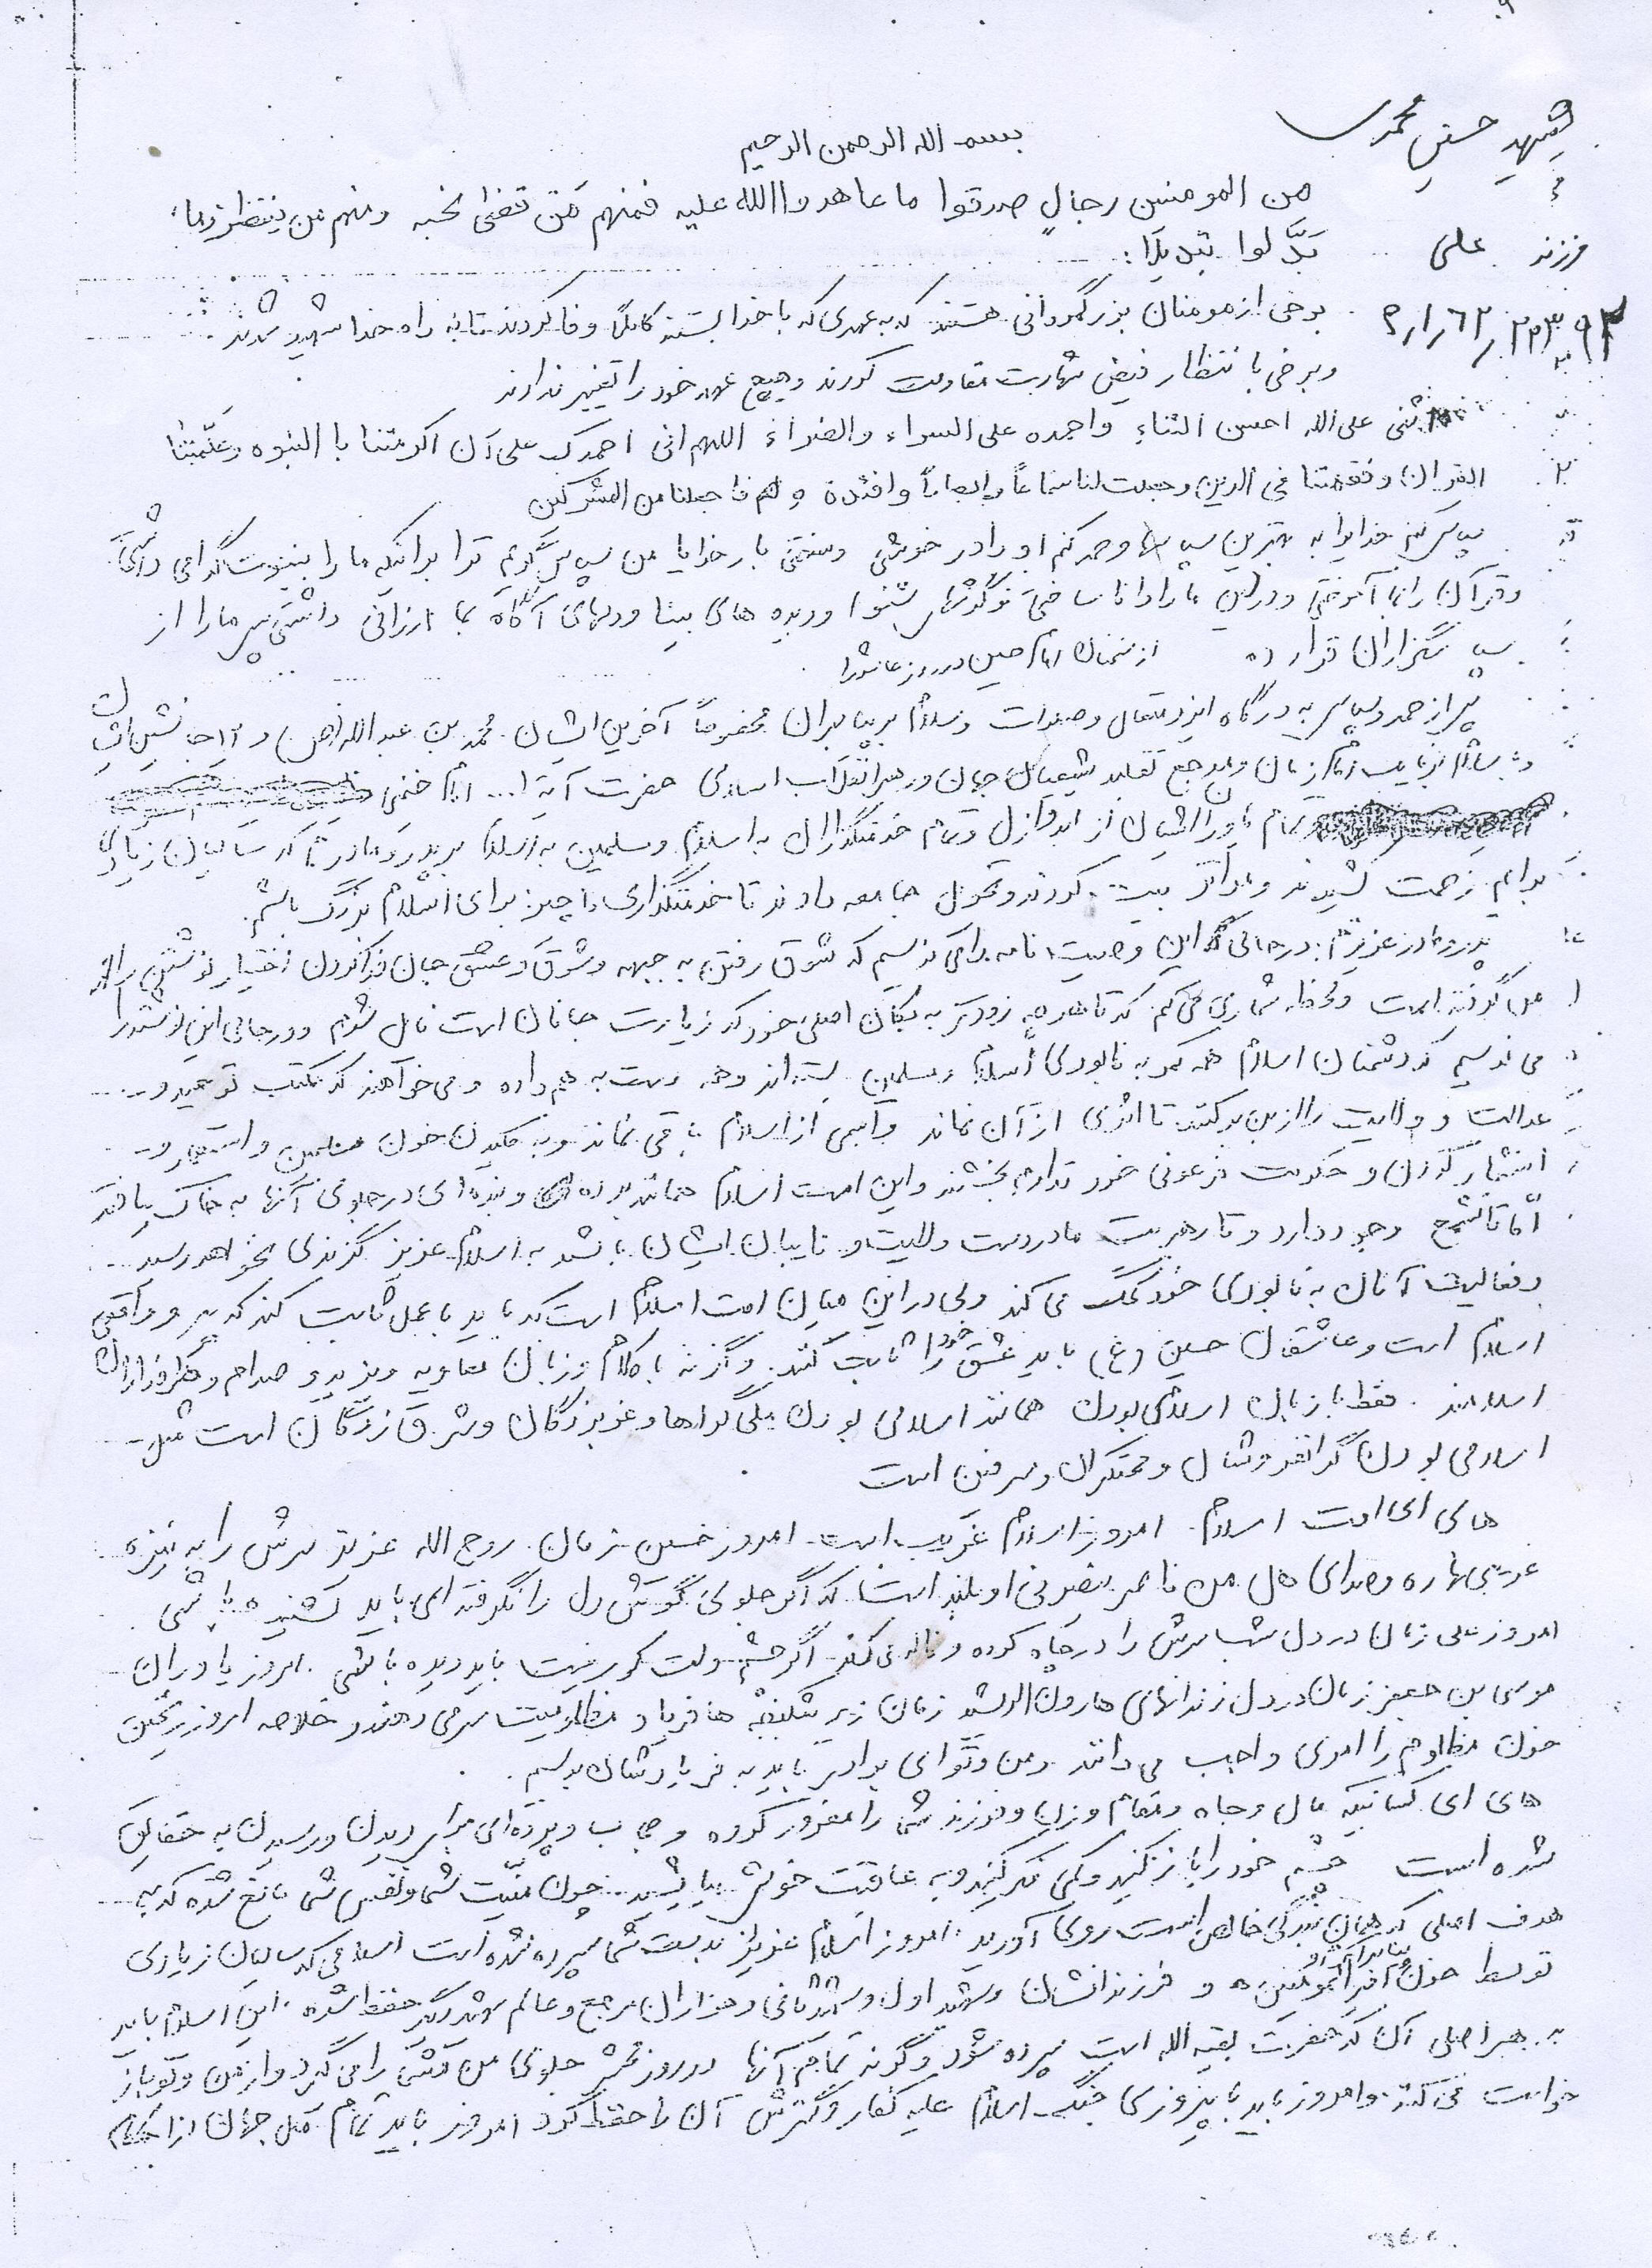 شهید حسن محمدی
بسمه الله الرحمن الرحیم
من المومنین رجالٍ صدقوا ما عاهدوا الله علیه فمنهم مَن قضیٰ نحبه ومنهم من ینتظر وما
فرزند علی
بَدَّلوا تبدیلاً:
برخی از مومنان بزرگمردانی هستند که به عهدی که با خدا بستند کاملاً وفا کردند تا به راه خدا شهید شدند
وبرخی با نتظار فیض شهادت مقاومت کردند وهیچ عهد خود را تغییر ندادند
علی الله احسن الثناءِ واحمده علی السراء والضراءَ اللهم انی احمدک علی آن اکرمتنا با النبوه وعلّمتنا
القرآن وفقهتنا فی الدین وجعلت لنا اسماعاً وابصاراً وافئدة و فاجعلنا من
سپاس کنم خدایرا به بهترین سپاسها وحمد کنم او را در خوشی وسختی بار خدایا من سپاس گویم ترا برآنکه ما را بنبوت گرامی داشتی
وقرآن را بما آموختی ودر دین ما را دانا ساختی وگوشهای شنوا ودیده های بینا ودلهای آگاه بما ارزانی داشتی پس ما را از
سپاسگزاران قرار ده از سخنان امام حسین در روز عاشورا
پس از حمد وسپاس به درگاه ایزد متعال وصلوات وسلام بر پیامبران مخصوصاً آخرین ایشان محمد بن عبدالله (ص) و ۱۲ جانشین
نایب امام زمان ومرجع تقلید شیعیان جهان ورهبر انقلاب اسلامی حضرت آیة ا... امام خمینی
تمام یاوران ایشان از ابد و ازل وتمام خدمتگذاران به اسلام ومسلمین به پدر ومادرم که سالیان زیادی
برایم زحمت کشیدند ومرا تربیت کردند وتحویل جامعه دادند تا خدمتگذاری ناچیز برای اسلام بزرگ باشم.
پدر ومادر عزیزم: در حالی که این وصیت نامه برایتان می نویسم که شوق رفتن به جبهه وشوق وعشق جان فدا کردن اختیار نوشتن را از
من گرفته است ولحظه شماری می کنم که تا هر چه زودتر به مکان اصلی خود که زیارت جانان است نائل شوم ودر حالی این نوشته را
می نویسم که دشمنان اسلام همه کمر به نابودی اسلام ومسلمین بسته اند وهمه دست به هم داده ومی خواهند که مکتب توحید و...
عدالت و ولایت را از بین برکنند تا اثری از آن نماند واسمی از اسلام باقی نماند وبه مکیدن خون مسلمین واستعمار و..
استثمار کردن و حکومت فرعونی خود تداوم بخشند واین امت اسلام همانند برده و بنده ای در جلوی آنها به خاک بیافتد
امّا تا تشیع وجود دارد وتا رهبریت ما در دست ولایت و نایبان ایشان باشد به اسلام عزیز گزندی نخواهد رسید...
وفعالیت آنان به نابودی خود کمک می کند ولی در این میان امت اسلام است که باید با عمل ثابت کند که پیرو واقعی
اسلام است وعاشقان حسین (ع) باید عشق خود را ثابت کنند. وگرنه با کلام وزبان معاویه ویزید و صدام و
اسلامند. فقط با زبان اسلامی بودن همانند اسلامی بودن ملی گراها وغربزدگان وشرق زدگان است مثل..
اسلامی بودن گرانفروشان ومحتکران ومسرفین است
های ای امت اسلام. امروز اسلام غریب است. امروز حسین زمان. روح الله عزیز سرش را به نیزه
غریبی نهاده وصدای هل من ناصر ینصرنی او بلند است که اگر جلوی گوش دل را نگرفته ای باید شنیده باشی.
امروز علی زمان در دل شب سرش را در چاه کرده وناله می کند. اگر چشم دلت کور نیست باید دیده باشی. امروز یاوران
موسی بن جعفر زمان در دل زندانهای هارون الرشید زمان زیر شکنجه ها فریاد مظلومیت سر می دهند و خلاصه امروز ریختن
خون مظلوم را امری واجب می دانند ومن وتو ای برادر باید به فریادشان برسیم.
های ای کسانیکه مال وجاه ومقام وزن وفرزند شما را مغرور کرده وحجاب وپرده ای برای دیدن ورسیدن به حقایق
شده است چشم خود را باز کنید وکمی فکر کنید وبه عاقبت خویش بیاندیشید. چون منیّت شما ونفس شما مانع شده که به
هدف اصلی که همان بندگی خالص است روی آورید. امروز اسلام عزیز بدست شما سپرده شده است اسلامی که سالیان زیادی
توسط خون امیرالمومنین و فرزندانشان وشهید اول وشهید ثانی وهزاران مرجع وعالم شهید دیگر حفظ شده. این اسلام باید
به رهبر اصلی آن که حضرت بقیه الله است سپرده شود وگرنه تمامی آنها در روز محشر جلوی من وتو را می گیرد واز من وتو باز
خواست می کند. وامروز باید با پیروزی جنگ اسلام علیه کفار وگسترش آن را حفظ کرد امروز باید تمام ملل جهان